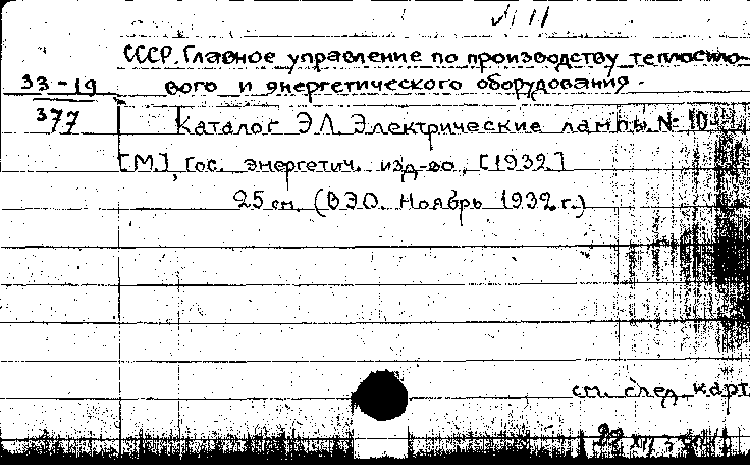 СССР. Главное управление по производству теплосило-
33-19 вого и энергетического оборудования.
377 Каталог ЭЛ. Электрические лампы. № 10
[М.], Гос. энергетич. изд-во, [1932]
25 см. (ВЭО. Ноябрь 1932 г.)
см. след. карт